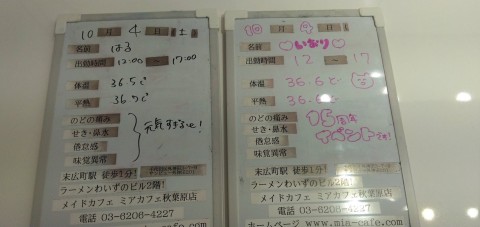 10 月 4 日 土
名前 はる
出勤時間 12:00～17:00
体温 36.5℃
平熱 36.5℃
のどの痛み
せき・鼻水
倦怠感
味覚異常
元気すぎるぜ!
末広町駅 徒歩1分!
ラーメンわいずのビル2階!
メイドカフェ ミアカフェ秋葉原店
電話 03-6206-4227
10 月 4 日
名前 ♡いおり♡
出勤時間 12 ～ 17
体温 36.6℃
平熱 36.6℃
のどの痛み
せき・鼻水
倦怠感
味覚異常
15周年
イベントです!
末広町駅 徒歩1分!
ラーメンわいずのビル2階!
メイドカフェ ミアカフェ秋葉原店
電話 03-6206-4227
ホームページ www.mia-cafe.com